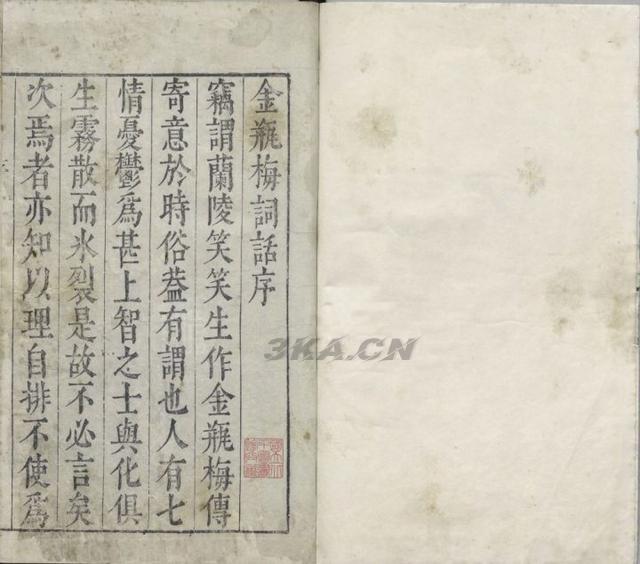 金瓶梅詞話序
竊謂蘭陵笑笑生作金瓶梅傳
寄意於時俗葢有謂也人有七
情憂鬱爲甚上智之士與化俱
生霧散而氷裂是故不必言矣
次焉者亦知以理自排不使爲
3KA.CN